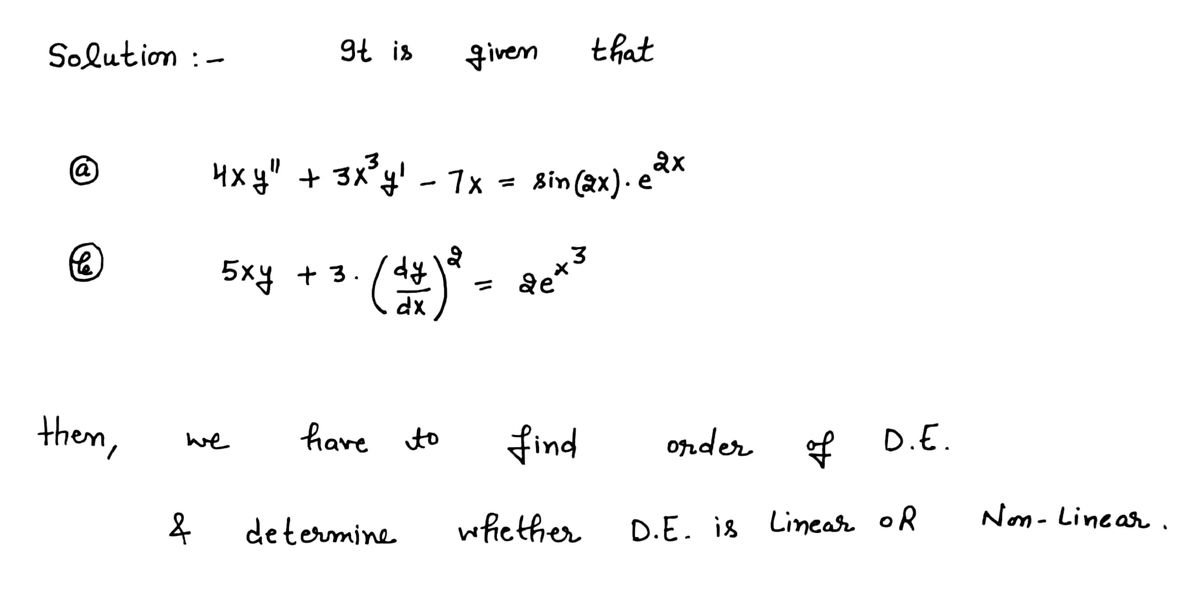 Solution :- It is given that
ⓐ 4xy" + 3x³y' - 7x = sin(2x). e²ˣ
ⓑ 5xy + 3. (dy/dx)² = 2e^x³
then, we have to find order of D.E.
& determine whether D.E. is Linear OR Non-Linear.